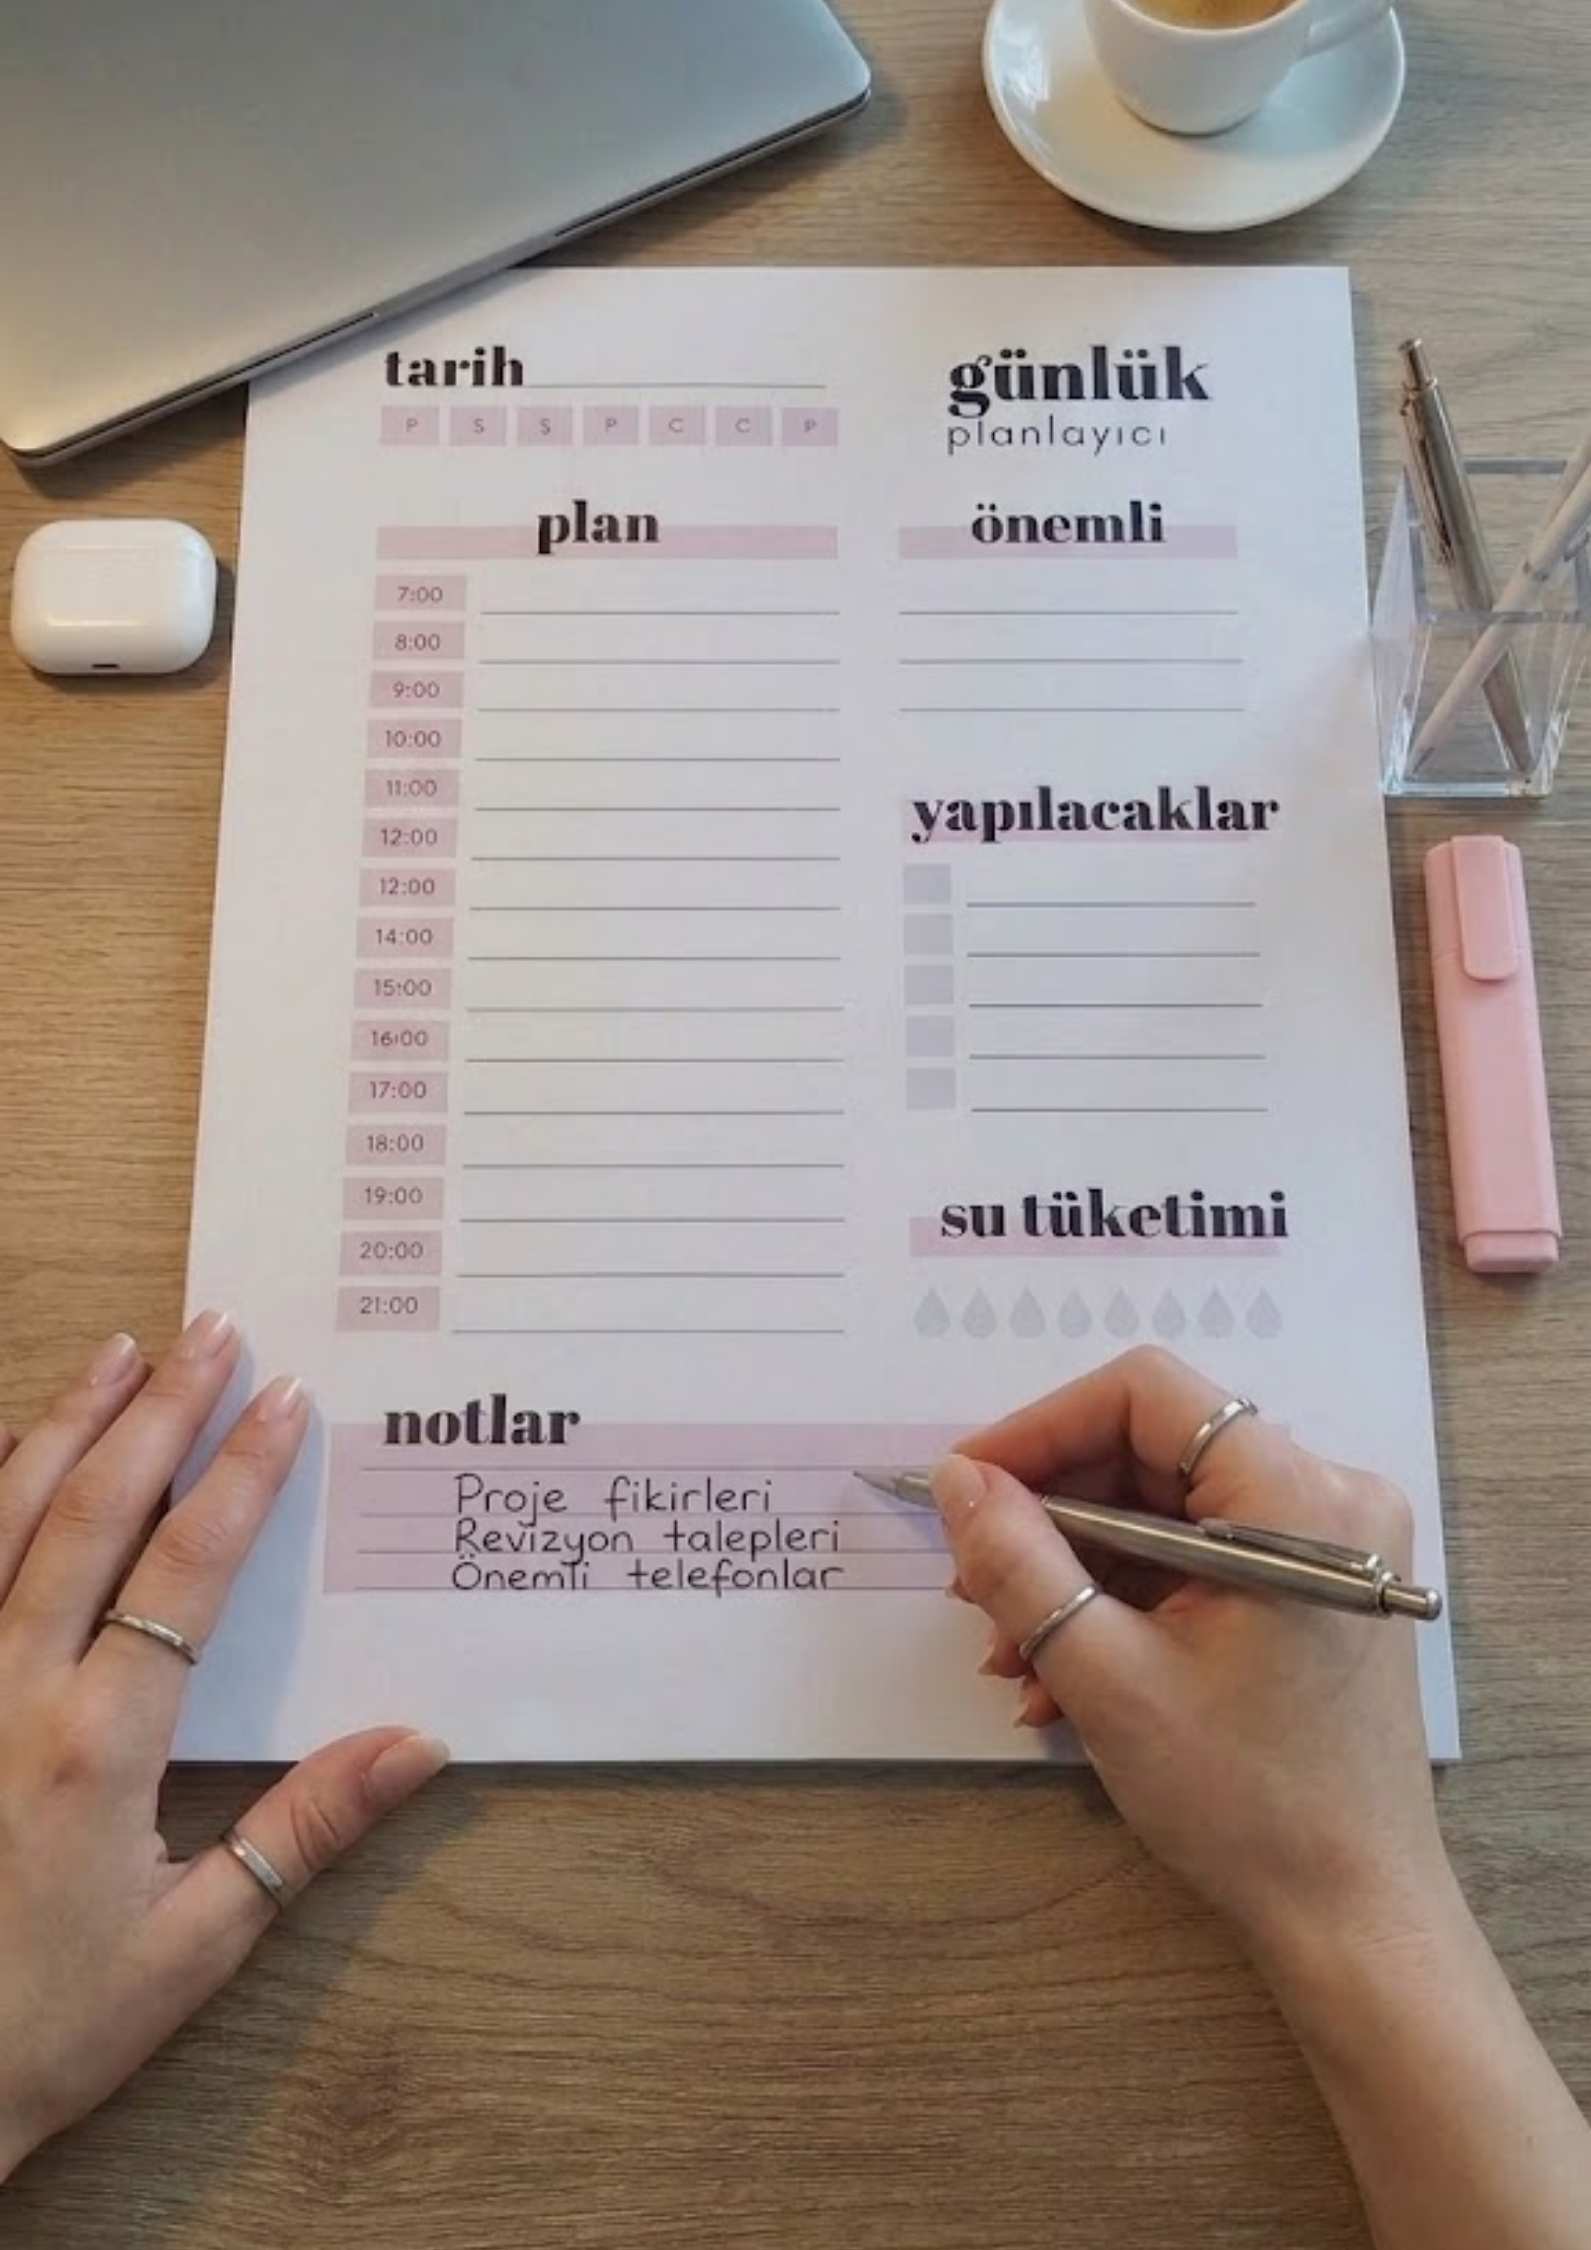 tarih
P S Ş P C C P
günlük
planlayıcı
plan
7:00
8:00
9:00
10:00
11:00
12:00
12:00
14:00
15:00
16:00
17:00
18:00
19:00
20:00
21:00
önemli
yapılacaklar
su tüketimi
notlar
Proje fikirleri
Revizyon talepleri
Önemli telefonlar